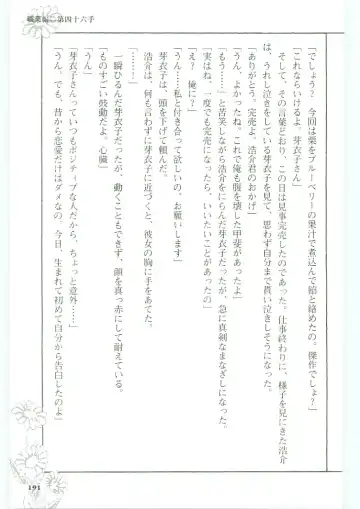 職業編 第四十六手
「でしょう？　今回は栗をブルーベリーの果汁で煮込んで餡と絡めたの。傑作でしょ？」
「これならいけるよ。芽衣子さん」
そして、その言葉どおり、この日は見事完売したのであった。仕事終わりに、様子を見にきた浩介
は、うれし泣きをしている芽衣子を見て、思わず自分まで貰い泣きしそうになった。
「ありがとう。完売よ、浩介君のおかげ」
「うん。よかったなぁ。これで俺も腹を壊した甲斐があったよ」
と苦笑しながら浩介をにらんだ芽衣子だったが、急に真剣なまなざしになった。
「実はね、一度でも完売になったら、いいたいことがあったの」
「え？　俺に？」
「うん……私と付き合って欲しいの。お願いします」
芽衣子は、頭を下げて頼んだ。
浩介は、何も言わずに芽衣子に近づくと、彼女の胸に手をあてた。
一瞬ひるんだ芽衣子だったが、動くこともできず、顔を真っ赤にして耐えている。
「ものすごい鼓動だよ。心臓」
「うん」
「芽衣子さんっていつもポジティブな人だから、ちょっと意外……」
「うん。でも、昔から恋愛だけはダメなの。今日、生まれて初めて自分から告白したのよ」
191